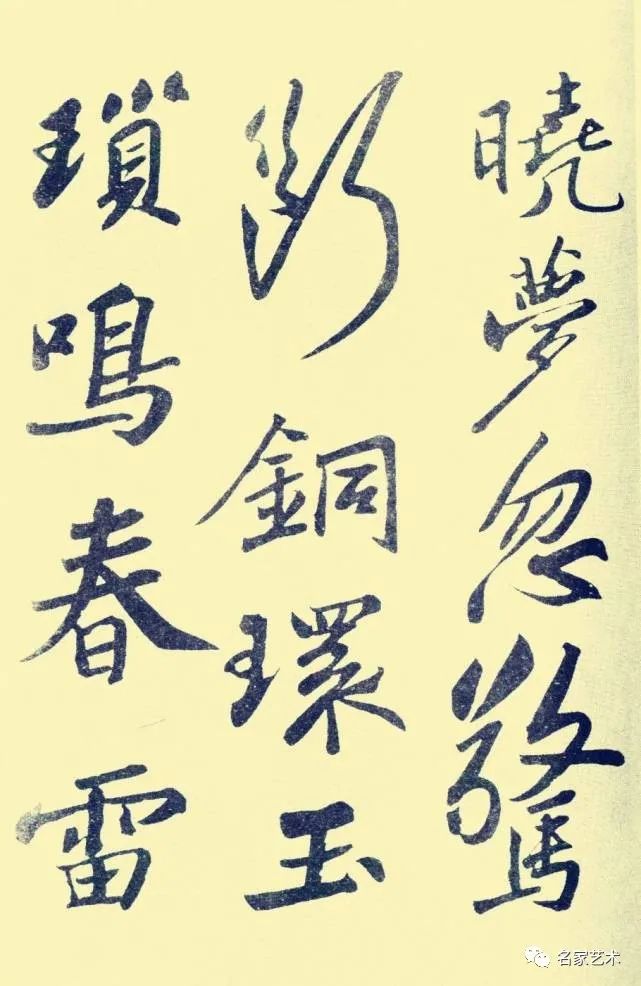 曉夢忽驚
斷銅環玉
瑣鳴春雷
名家艺术